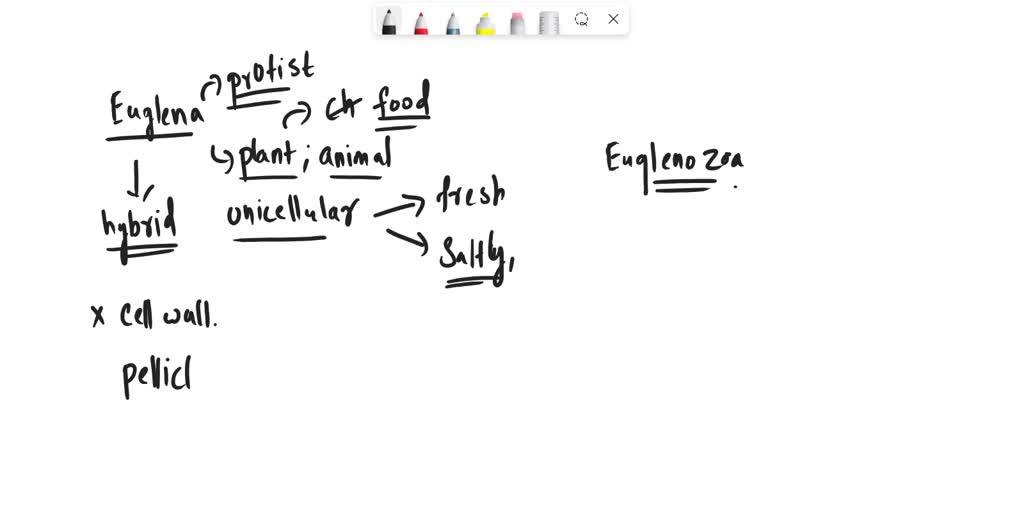 protist
Euglena
ch food
plant ; animal
Eugleno zoa
hybrid
unicellular
fresh
Saltly,
x Cell wall.
pellicl